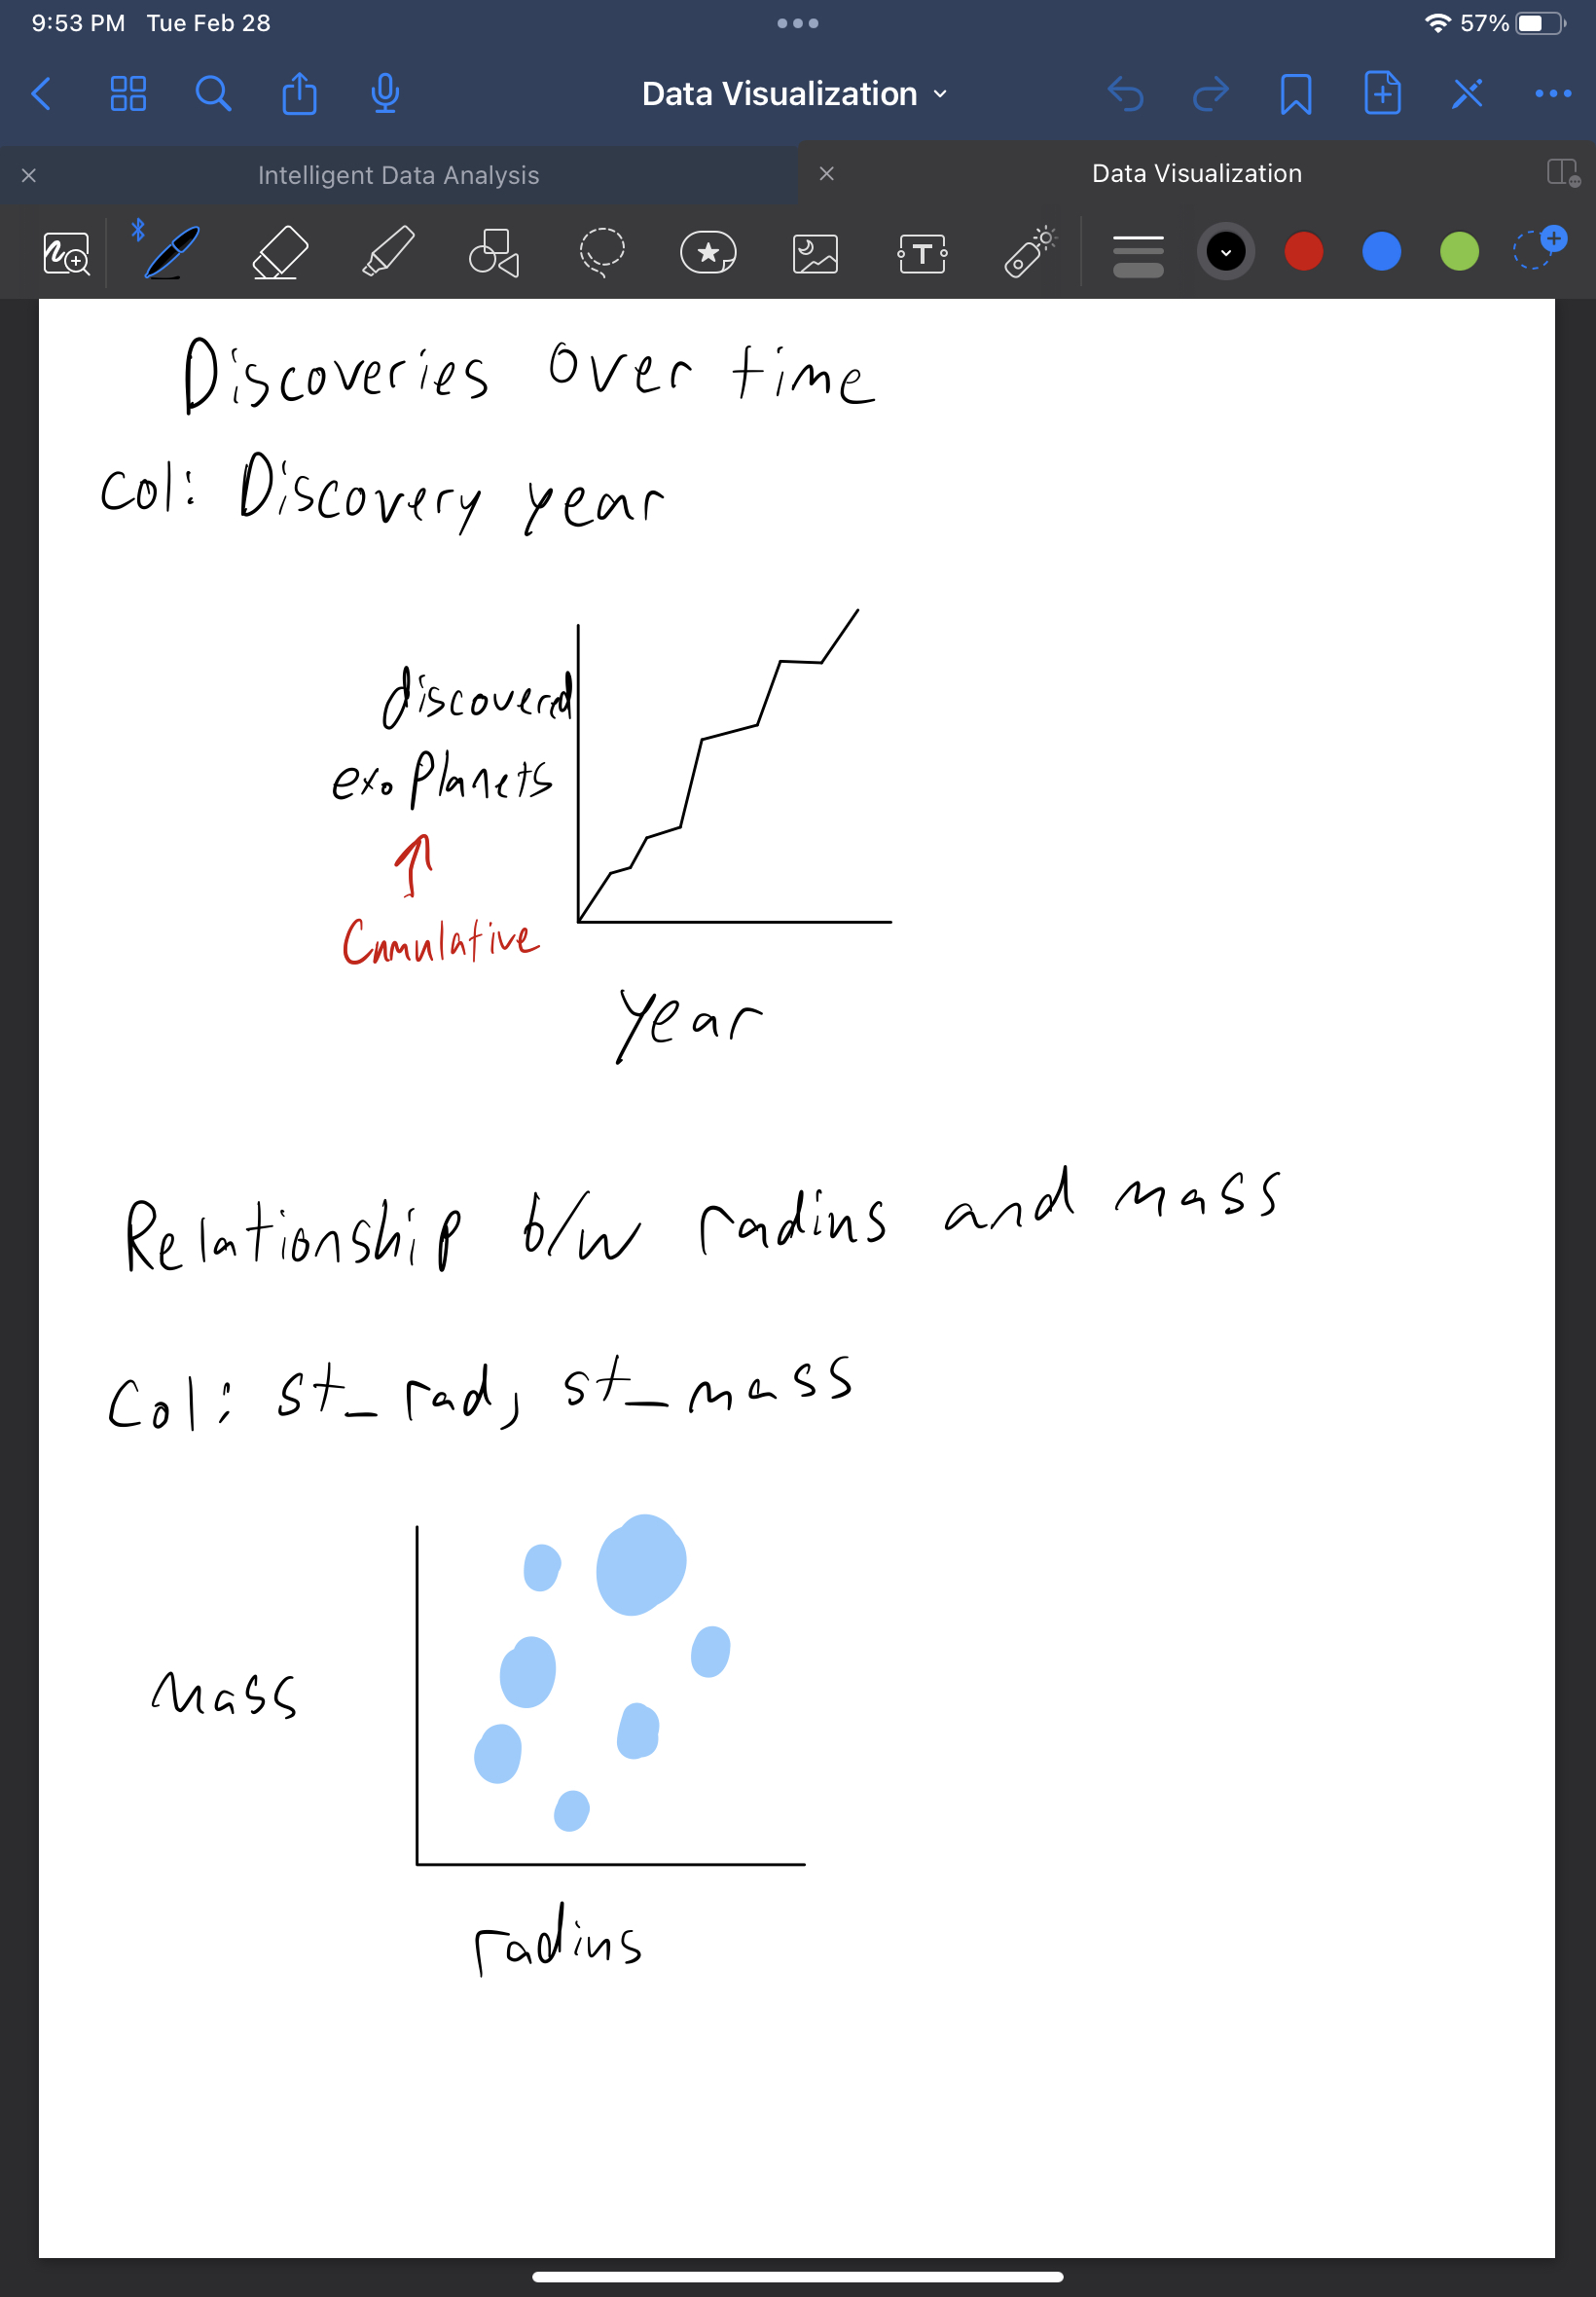 9:53 PM Tue Feb 28
57%
Data Visualization
Intelligent Data Analysis
Data Visualization
T
Discoveries over time
Col: Discovery year
discovered
exoplanets
Cumulative
year
Relationship b/w radius and mass
Col: st_rad, st_mass
Mass
radius